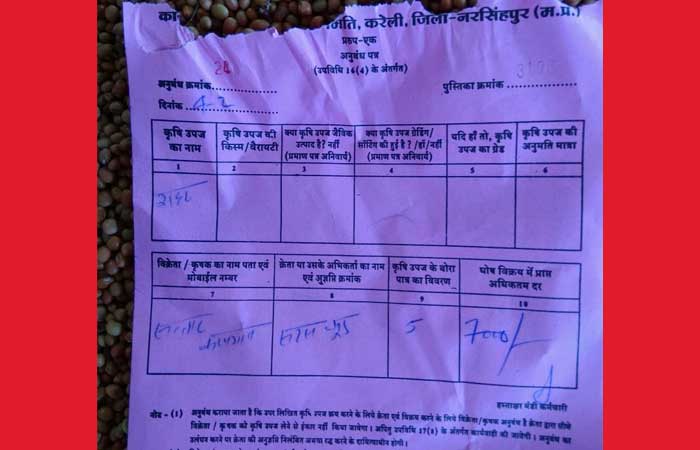 मति, करेली, जिला-नरसिंहपुर (म.प्र.)
प्ररूप-एक
अनुबंध पत्र
(उपविधि 16(4) के अंतर्गत)
अनुबंध क्रमांक 24
पुस्तिका क्रमांक
दिनांक
कृषि उपज का नाम
कृषि उपज की किस्म/वैरायटी
क्या कृषि उपज जैविक उत्पाद है? नहीं (प्रमाण पत्र अनिवार्य)
क्या कृषि उपज ग्रेडिंग/सॉर्टिंग की हुई है? /हाँ/नहीं (प्रमाण पत्र अनिवार्य)
यदि हाँ तो, कृषि उपज का ग्रेड
कृषि उपज की अनुमति मात्रा
1 2 3 4 5 6
विक्रेता / कृषक का नाम पता एवं मोबाईल नम्बर
क्रेता या उसके अभिकर्ता का नाम एवं अनुज्ञप्ति क्रमांक
कृषि उपज के बोरा पात्र का विवरण
घोष विक्रय में प्राप्त अधिकतम दर
7 8 9 10
5 7000/-
हस्ताक्षर मंडी कर्मचारी
नोट - (1) अनुबंध कराया जाता है कि उपर लिखित कृषि उपज क्रय करने के लिये क्रेता एवं विक्रय करने के लिये विक्रेता/कृषक अनुबंध है क्रेता द्वारा सीधे
विक्रेता / कृषक को कृषि उपज लेने से इंकार नहीं किया जावेगा। अपितु उपविधि 17(3) के अंतर्गत कार्यवाही की जावेगी। अनुबंध का
उलंघन करने पर क्रेता की अनुज्ञप्ति निलंबित अथवा रद्द करने के दायित्वाधीन होगी।